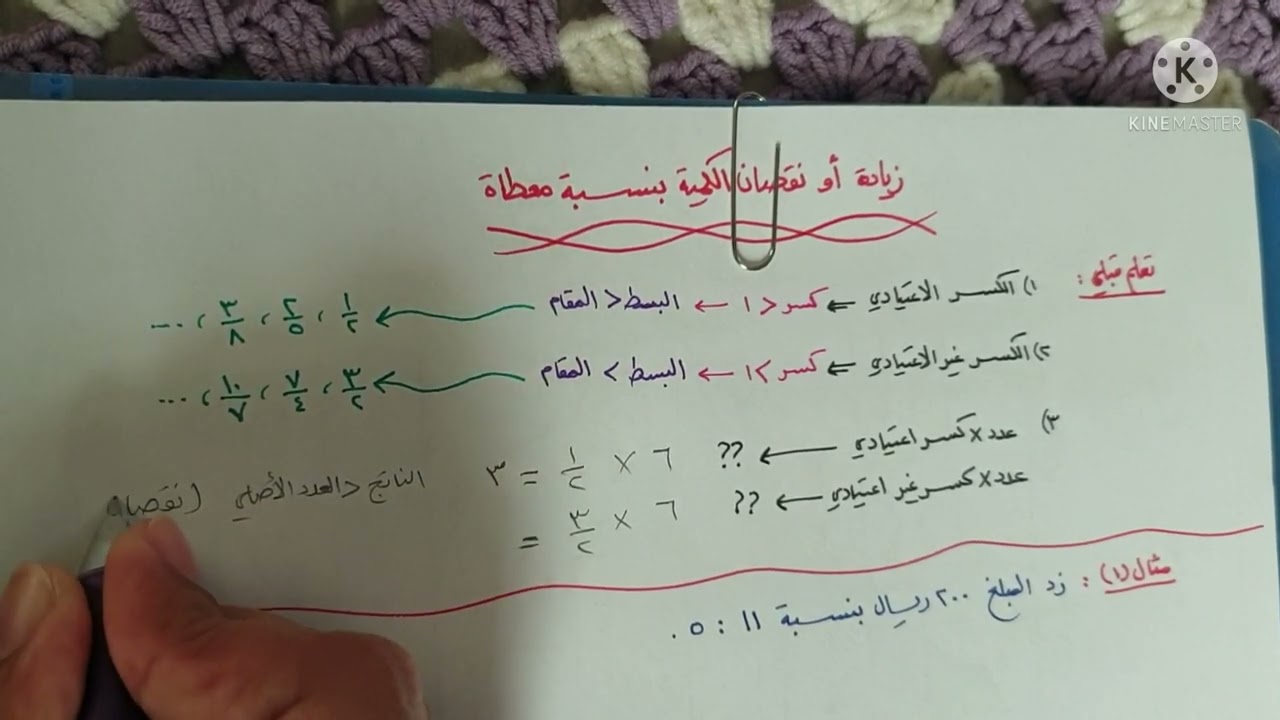 K
KINEMASTER
زيادة أو نقصان الكمية بنسبة معطاة
تعلم قبلي :
١) الكسر الاعتيادي ← كسر < ١ ← البسط < المقام ← ١/٢ ، ٢/٥ ، ٣/٨ ، ...
٢) الكسر غير الاعتيادي ← كسر > ١ ← البسط > المقام ← ٣/٢ ، ٧/٤ ، ١٠/٧ ، ...
٣) عدد × كسر اعتيادي ← ?? ٦ × ١/٢ = ٣ الناتج < العدد الأصلي (نقصان
عدد × كسر غير اعتيادي ← ?? ٦ × ٣/٢ =
مثال (١) : زد المبلغ ٢٠٠ ريال بنسبة ١١ : ٥ .